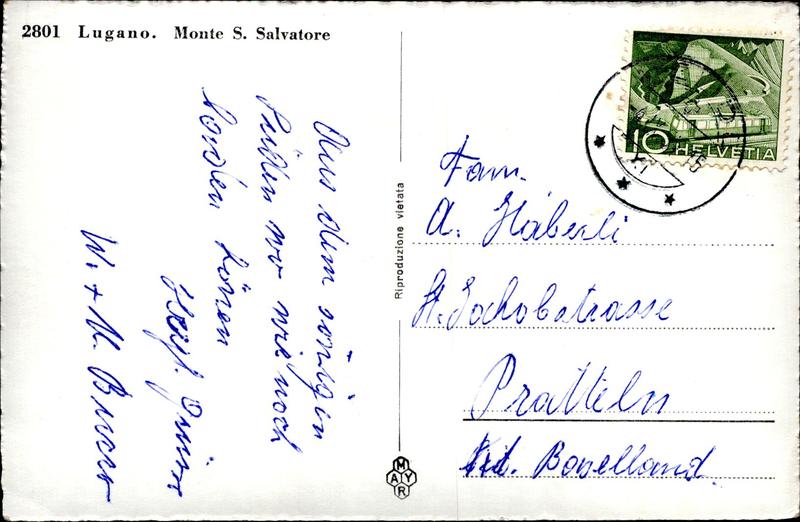 2801 Lugano. Monte S. Salvatore
Aus dem sönigen
Süden wo wir noch
baden können
Hezl. Grüsse
W. + M. Bucher
Riproduzione vietata
MAYR
10 HELVETIA
Fam.
A. Häberli
St. Jakobstrasse
Pratteln
Kt. Baselland.